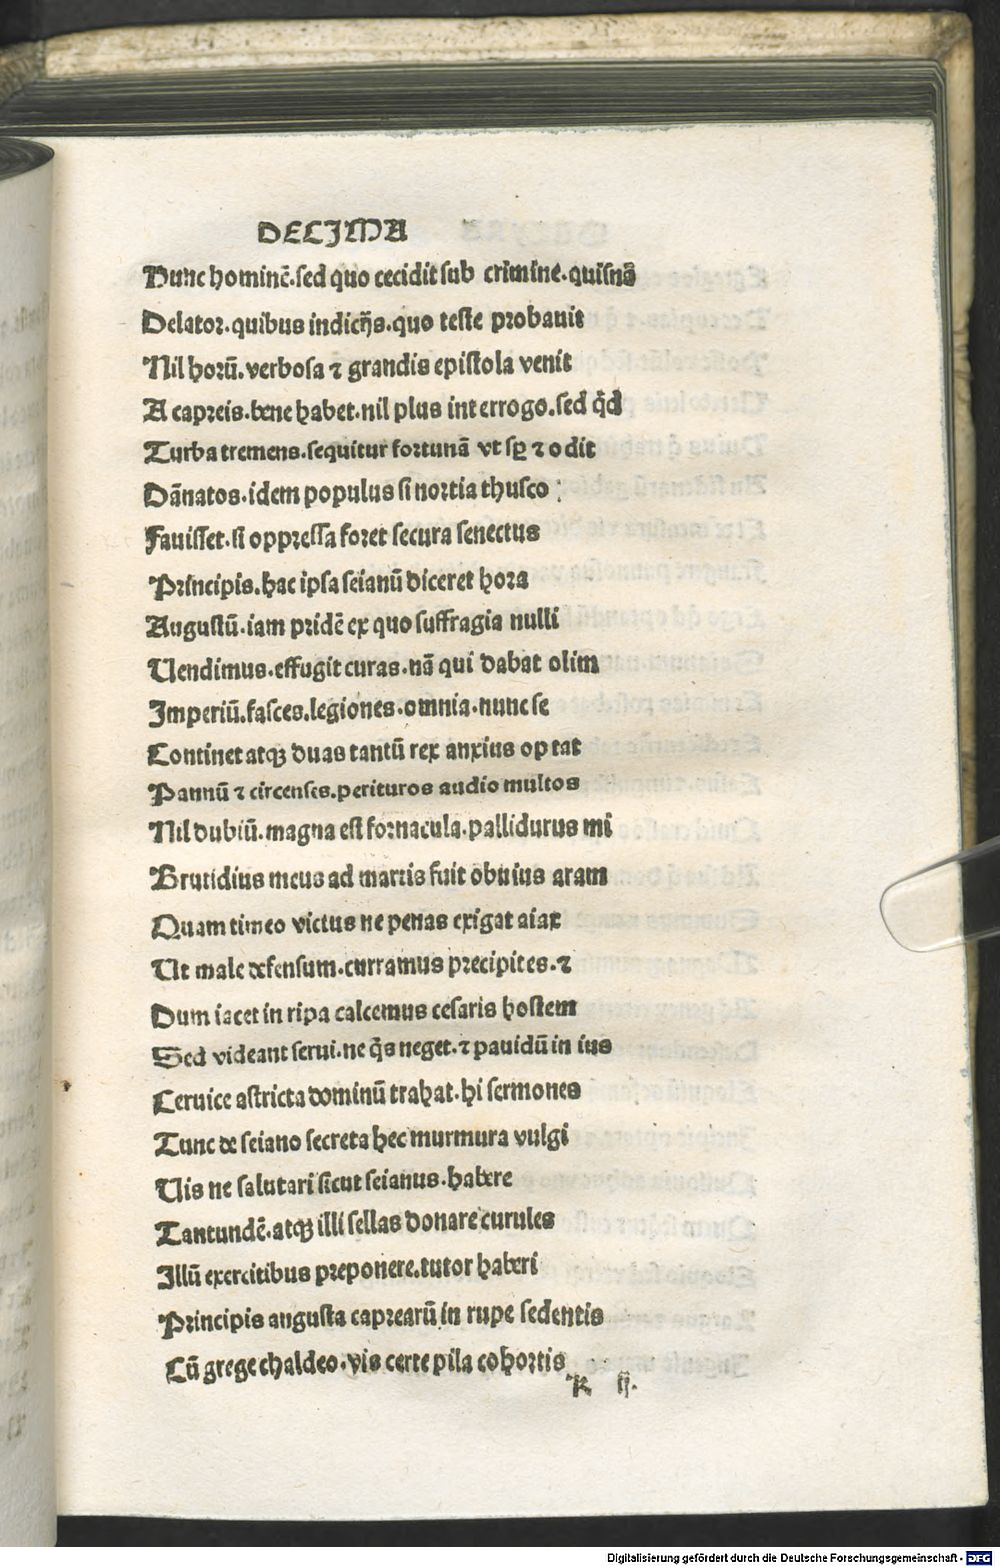 DECIMA
Hunc hominē.sed quo cecidit sub crimine.quisnā
Delator.quibus indicijs.quo teste probauit
Nil horū.verbosa ⁊ grandis epistola venit
A capreis.bene habet.nil plus interrogo.sed qͥd
Turba tremens.sequitur fortunā vt sꝑ ⁊ odit
Dānatos.idem populus si nortia thusco :
Fauisset.si oppressa foret secura senectus
Principis.hac ipsa seianū diceret hora
Augustū.iam pridē ex quo suffragia nulli
Uendimus.effugit curas.nā qui dabat olim
Imperiū.fasces.legiones.omnia.nunc se
Continet atqꝫ duas tantū rex anxius optat
Pannū ⁊ circenses.perituros audio multos
Nil dubiū.magna est fornacula.pallidurus mi
Brutidius meus ad martis fuit obuius aram
Quam timeo victus ne penas exigat aiax
Ut male defensum.curramus precipites.⁊
Dum iacet in ripa calcemus cesaris hostem
Sed videant serui.ne qͥs neget.⁊ pauidū in ius
Ceruice astricta dominū trahat.hi sermones
Tunc de seiano secreta hec murmura vulgi
Uis ne salutari sicut seianus.habere
Tantundē.atqꝫ illi sellas donare curules
Illū exercitibus preponere.tutor haberi
Principis augusta caprearū in rupe sedentis
Cū grege chaldeo.vis certe pila cohortis
k ij.
Digitalisierung gefördert durch die Deutsche Forschungsgemeinschaft - DFG